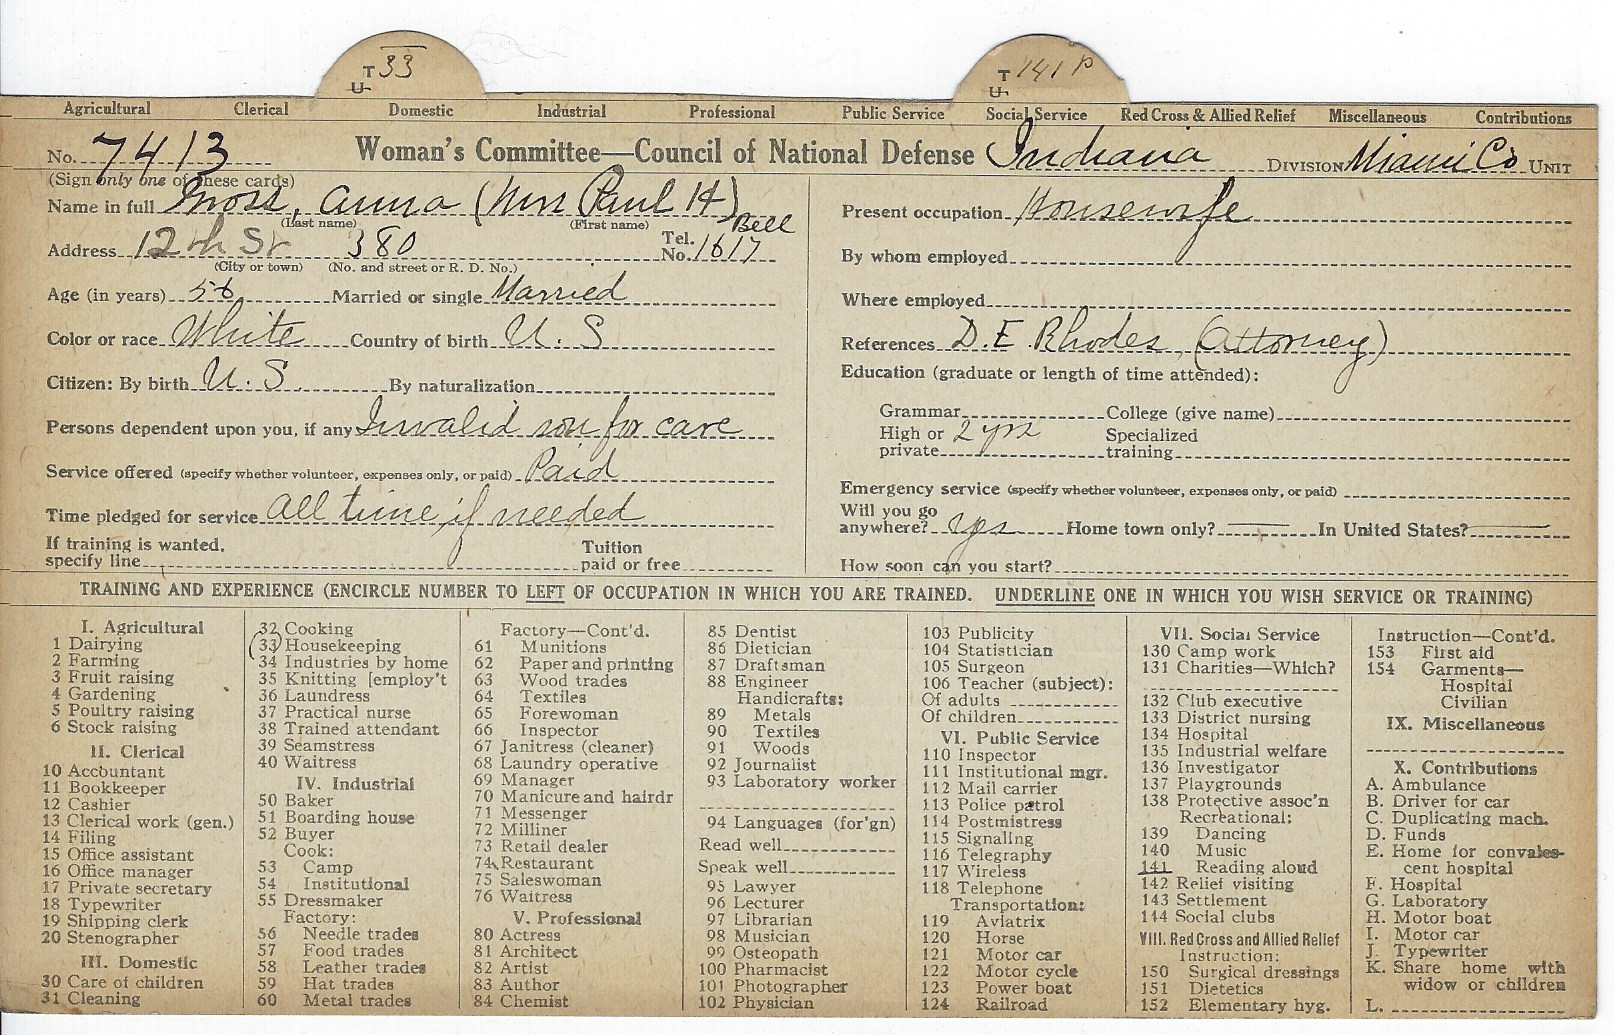 T 33
U
T 141 P
U
Agricultural Clerical Domestic Industrial Professional Public Service Social Service Red Cross & Allied Relief Miscellaneous Contributions
No. 7413 Woman's Committee—Council of National Defense Indiana DIVISION Miami Co UNIT
(Sign only one of these cards)
Name in full Gross, Anna (Mrs Paul H)
(Last name) (First name)
Address 12th St 380 Tel. No. Bell 1617
(City or town) (No. and street or R. D. No.)
Age (in years) 56 Married or single Married
Color or race White Country of birth U. S
Citizen: By birth U. S. By naturalization
Persons dependent upon you, if any Invalid son for care
Service offered (specify whether volunteer, expenses only, or paid) Paid
Time pledged for service all time if needed
If training is wanted, specify line Tuition paid or free
Present occupation Housewife
By whom employed
Where employed
References D. E. Rhodes, (Attorney)
Education (graduate or length of time attended):
Grammar College (give name)
High or private 2 yrs Specialized training
Emergency service (specify whether volunteer, expenses only, or paid)
Will you go anywhere? yes Home town only? In United States?
How soon can you start?
TRAINING AND EXPERIENCE (ENCIRCLE NUMBER TO LEFT OF OCCUPATION IN WHICH YOU ARE TRAINED. UNDERLINE ONE IN WHICH YOU WISH SERVICE OR TRAINING)
I. Agricultural
1 Dairying
2 Farming
3 Fruit raising
4 Gardening
5 Poultry raising
6 Stock raising
II. Clerical
10 Accountant
11 Bookkeeper
12 Cashier
13 Clerical work (gen.)
14 Filing
15 Office assistant
16 Office manager
17 Private secretary
18 Typewriter
19 Shipping clerk
20 Stenographer
III. Domestic
30 Care of children
31 Cleaning
32 Cooking
33 Housekeeping
34 Industries by home
35 Knitting [employ't
36 Laundress
37 Practical nurse
38 Trained attendant
39 Seamstress
40 Waitress
IV. Industrial
50 Baker
51 Boarding house
52 Buyer
Cook:
53 Camp
54 Institutional
55 Dressmaker
Factory:
56 Needle trades
57 Food trades
58 Leather trades
59 Hat trades
60 Metal trades
Factory—Cont'd.
61 Munitions
62 Paper and printing
63 Wood trades
64 Textiles
65 Forewoman
66 Inspector
67 Janitress (cleaner)
68 Laundry operative
69 Manager
70 Manicure and hairdr
71 Messenger
72 Milliner
73 Retail dealer
74 Restaurant
75 Saleswoman
76 Waitress
V. Professional
80 Actress
81 Architect
82 Artist
83 Author
84 Chemist
85 Dentist
86 Dietician
87 Draftsman
88 Engineer
Handicrafts:
89 Metals
90 Textiles
91 Woods
92 Journalist
93 Laboratory worker
94 Languages (for'gn)
Read well
Speak well
95 Lawyer
96 Lecturer
97 Librarian
98 Musician
99 Osteopath
100 Pharmacist
101 Photographer
102 Physician
103 Publicity
104 Statistician
105 Surgeon
106 Teacher (subject):
Of adults
Of children
VI. Public Service
110 Inspector
111 Institutional mgr.
112 Mail carrier
113 Police patrol
114 Postmistress
115 Signaling
116 Telegraphy
117 Wireless
118 Telephone
Transportation:
119 Aviatrix
120 Horse
121 Motor car
122 Motor cycle
123 Power boat
124 Railroad
VII. Social Service
130 Camp work
131 Charities—Which?
132 Club executive
133 District nursing
134 Hospital
135 Industrial welfare
136 Investigator
137 Playgrounds
138 Protective assoc'n
Recreational:
139 Dancing
140 Music
141 Reading aloud
142 Relief visiting
143 Settlement
144 Social clubs
VIII. Red Cross and Allied Relief
Instruction:
150 Surgical dressings
151 Dietetics
152 Elementary hyg.
Instruction—Cont'd.
153 First aid
154 Garments—
Hospital
Civilian
IX. Miscellaneous
X. Contributions
A. Ambulance
B. Driver for car
C. Duplicating mach.
D. Funds
E. Home for convales-
cent hospital
F. Hospital
G. Laboratory
H. Motor boat
I. Motor car
J. Typewriter
K. Share home with
widow or children
L.